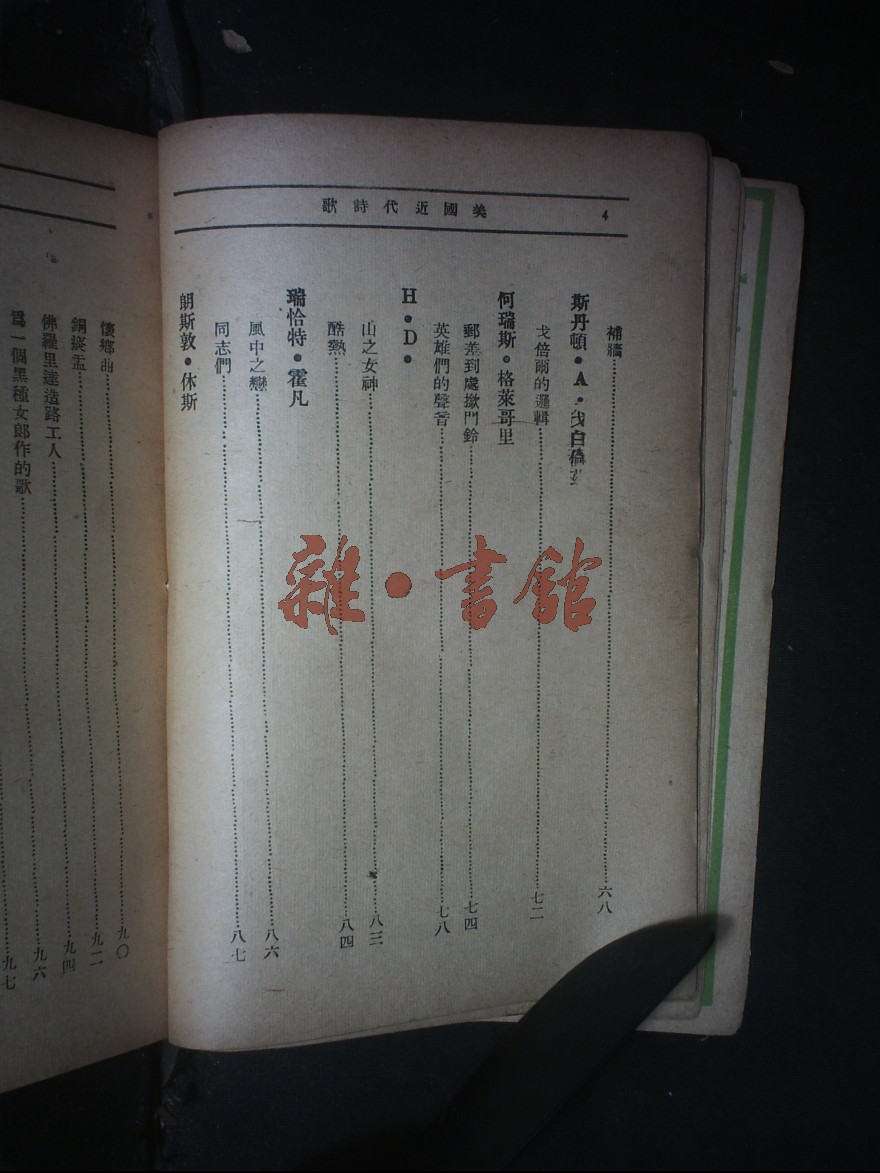 美國近代詩歌 4
補牆 六八
斯丹頓·A·戈白倫茲
戈倍爾的邏輯 七二
何瑞斯·格萊哥里
郵差到處撳門鈴 七四
英雄們的聲音 七八
H·D·
山之女神 八三
酷熱 八四
瑞恰特·霍凡
風中之戀 八六
同志們 八七
朗斯敦·休斯
懷鄉曲 九〇
銅痰盂 九二
九四
佛羅里達造路工人 九六
爲一個黑種女郎作的歌 九七
雜·書館